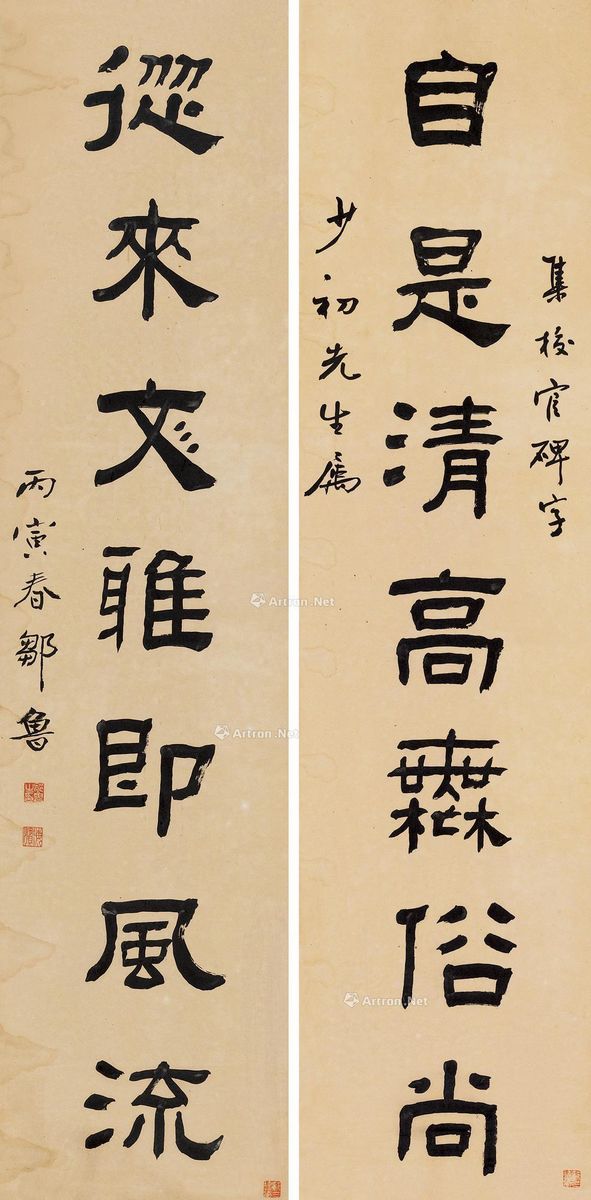 集校官碑字
自是清高無俗尚
少初先生属
從來文雅即風流
丙寅春鄒魯
Artron.Net
Artron.Net
Artron.Net